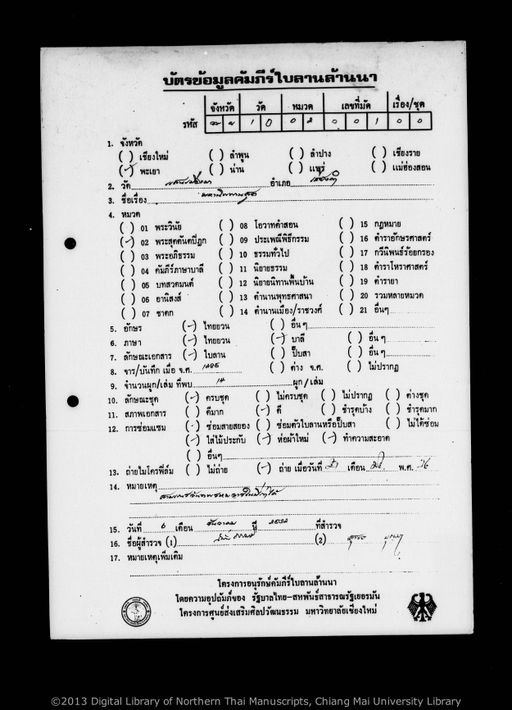 บัตรข้อมูลคัมภีร์ใบลานล้านนา
จังหวัด วัด หมวด เลขที่มัด เรื่อง/ชุด
รหัส 1 0 0 2 0 0 1 0 0
1. จังหวัด
( ) เชียงใหม่ ( ) ลำพูน ( ) ลำปาง ( ) เชียงราย
(-) พะเยา ( ) น่าน ( ) แพร่ ( ) แม่ฮ่องสอน
2. วัด อำเภอ
3. ชื่อเรื่อง
4. หมวด
( ) 01 พระวินัย ( ) 08 โอวาทคำสอน ( ) 15 กฎหมาย
(-) 02 พระสุตตันตปิฎก ( ) 09 ประเพณีพิธีกรรม ( ) 16 ตำราอักษรศาสตร์
( ) 03 พระอภิธรรม ( ) 10 ธรรมทั่วไป ( ) 17 กวีนิพนธ์ร้อยกรอง
( ) 04 คัมภีร์ภาษาบาลี ( ) 11 นิยายธรรม ( ) 18 ตำราโหราศาสตร์
( ) 05 บทสวดมนต์ ( ) 12 นิยายนิทานพื้นบ้าน ( ) 19 ตำรายา
( ) 06 อานิสงส์ ( ) 13 ตำนานพุทธศาสนา ( ) 20 รวมหลายหมวด
( ) 07 ชาดก ( ) 14 ตำนานเมือง/ราชวงศ์ ( ) 21 อื่นๆ
5. อักษร (-) ไทยยวน ( ) อื่น ๆ
6. ภาษา (-) ไทยยวน (-) บาลี ( ) อื่น ๆ
7. ลักษณะเอกสาร (-) ใบลาน ( ) ปั๊บสา ( ) อื่น ๆ
8. จาร/บันทึก เมื่อ จ.ศ. ( ) ต่าง จ.ศ. ( ) ไม่ปรากฏ
9. จำนวนผูก/เล่ม ที่พบ 14 ผูก/เล่ม
10. ลักษณะชุด (-) ครบชุด ( ) ไม่ครบชุด ( ) ไม่ปรากฏ ( ) ต่างชุด
11. สภาพเอกสาร ( ) ดีมาก (-) ดี ( ) ชำรุดบ้าง ( ) ชำรุดมาก
12. การซ่อมแซม (-) ซ่อมสายสยอง ( ) ซ่อมตัวใบลานหรือปั๊บสา ( ) ไม่ได้ซ่อม
(-) ใส่ไม้ประกับ (-) ห่อผ้าใหม่ (-) ทำความสะอาด
( ) อื่นๆ
13. ถ่ายไมโครฟิล์ม ( ) ไม่ถ่าย (-) ถ่าย เมื่อวันที่ เดือน พ.ศ. 26
14. หมายเหตุ
15. วันที่ 6 เดือน ธันวาคม ปี ที่สำรวจ
16. ชื่อผู้สำรวจ (1) (2)
17. หมายเหตุเพิ่มเติม
โครงการอนุรักษ์คัมภีร์ใบลานล้านนา
โดยความอุปถัมภ์ของ รัฐบาลไทย-สหพันธ์สาธารณรัฐเยอรมัน
โครงการศูนย์ส่งเสริมศิลปวัฒนธรรม มหาวิทยาลัยเชียงใหม่
©2013 Digital Library of Northern Thai Manuscripts, Chiang Mai University Library